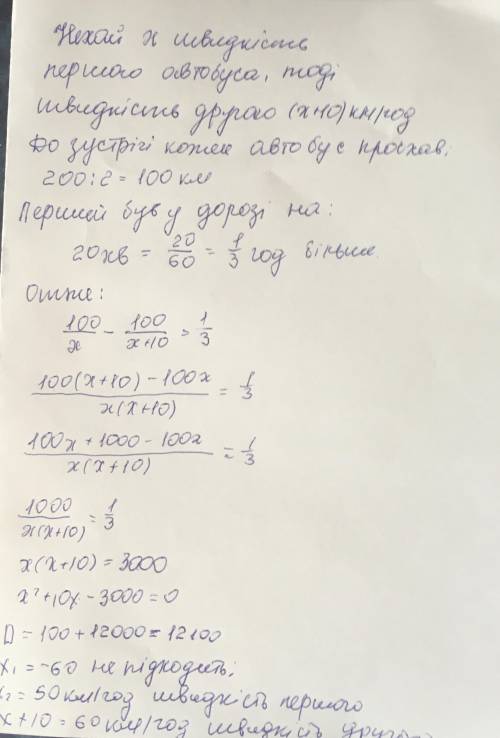 Нехай x швидкість
першого автобуса, тоді
швидкість другого (x+10) км/год
До зустрічі кожен автобус проїхав:
200:2 = 100 км
Перший був у дорозі на:
20хв = 20/60 = 1/3 год більше.
Отже:
100/x - 100/(x+10) = 1/3
(100(x+10) - 100x)/(x(x+10)) = 1/3
(100x + 1000 - 100x)/(x(x+10)) = 1/3
1000/(x(x+10)) = 1/3
x(x+10) = 3000
x² + 10x - 3000 = 0
D = 100 + 12000 = 12100
x₁ = -60 не підходить;
x₂ = 50 км/год швидкість першого
x + 10 = 60 км/год швидкість другого